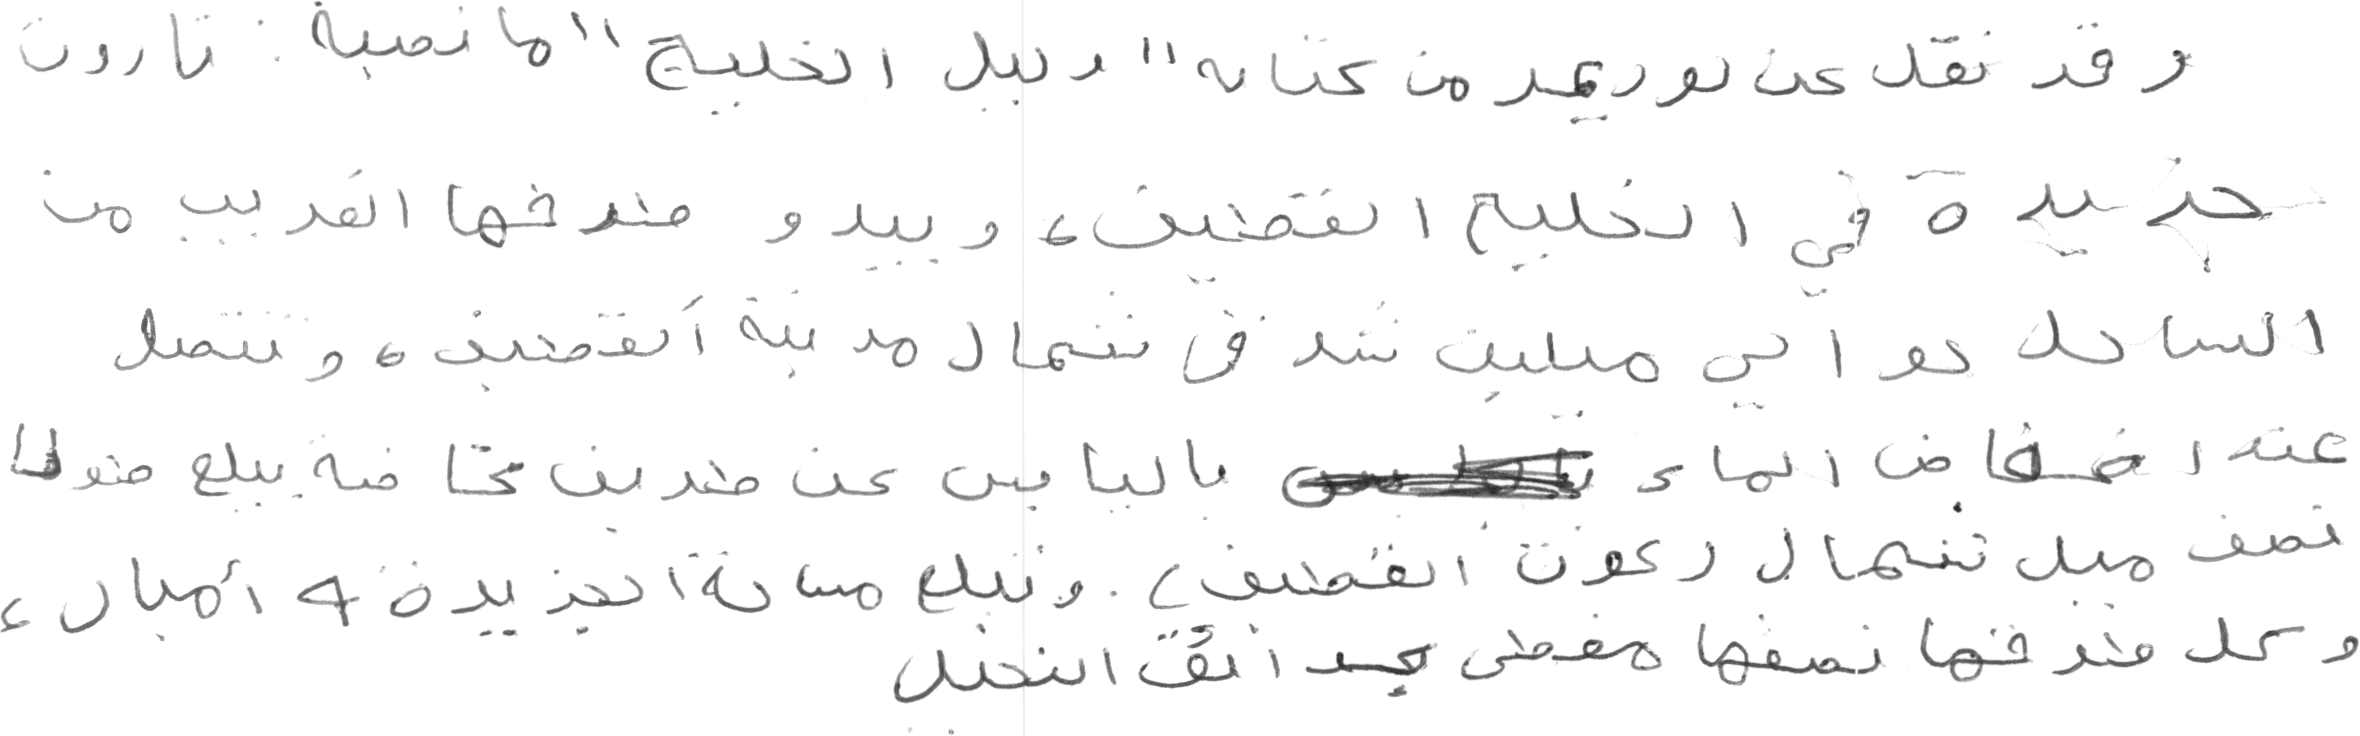 وقد نقل عن لوريمر من كتابه "دليل الخليج" ما نصبة : تاروت
جزيرة في الخليج القطيف، ويبدو طرفها القريب من
الساحل حوالي ميلين شرق شمال مدينة القطيف، وتتصل
عند انخفاض الماء باليابس عن طريق مخاضة يبلغ طولها
نصف ميل شمال (كوت القطيف). وتبلغ مساحة الجزيرة 4 أميال،
وكل طرفها نصفها مغطى بحدائق النخيل